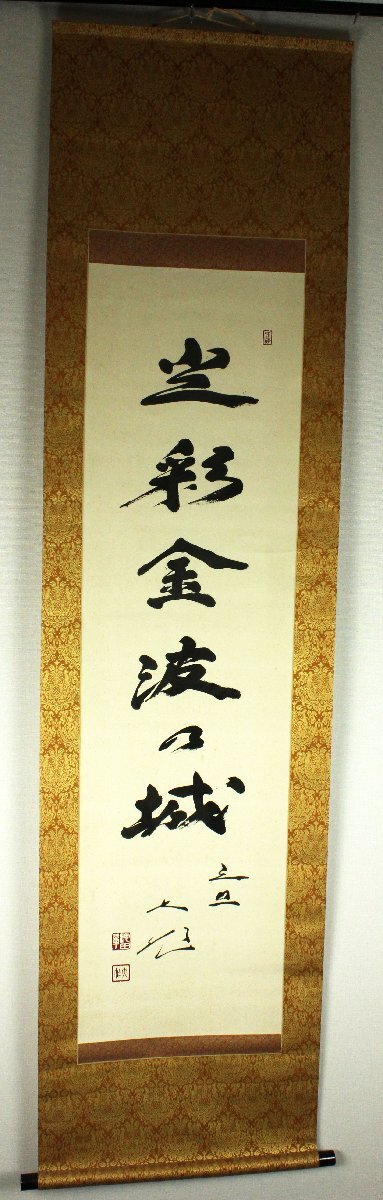 光彩金波の城